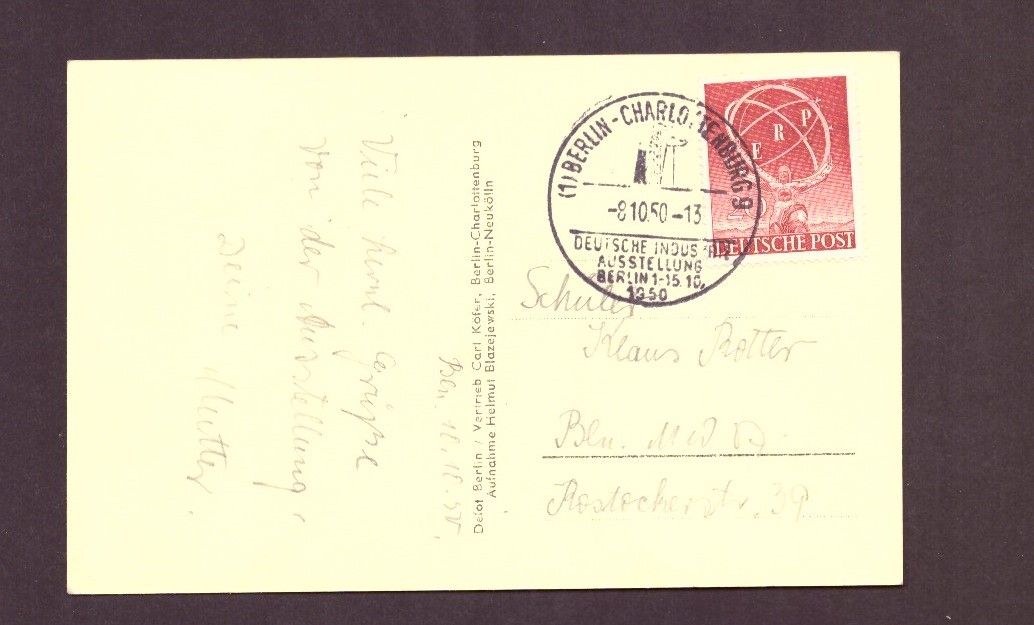 Viele herzl. Grüße
von der Ausstellung,
Deine Mutter.
Defot Berlin / Vertrieb Carl Köfer, Berlin-Charlottenburg
Aufnahme Helmut Blazejewski, Berlin-Neukölln
(1) BERLIN-CHARLOTTENBURG 9
-8.10.50-13
DEUTSCHE INDUSTRIE
AUSSTELLUNG
BERLIN 1-15.10.
1950
ERP
DEUTSCHE POST
Schüler
Klaus Rotter
Bln.
Rostockerstr. 39